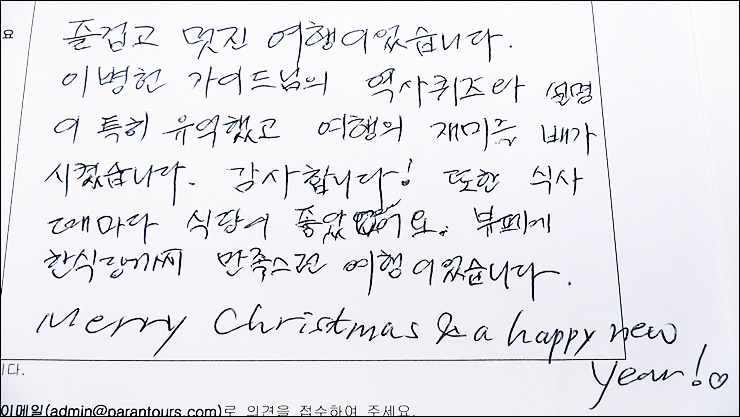 요
즐겁고 멋진 여행이었습니다.
이병헌 가이드님의 역사퀴즈와 설명
이 특히 유익했고 여행의 재미를 배가
시켰습니다. 감사합니다! 또한 식사
때마다 식당이 좋았어요. 뷔페에
한식당까지 만족스런 여행이었습니다.
Merry Christmas & a happy new
year!♡
니다.
이메일(admin@parantours.com)로 의견을 접수하여 주세요.